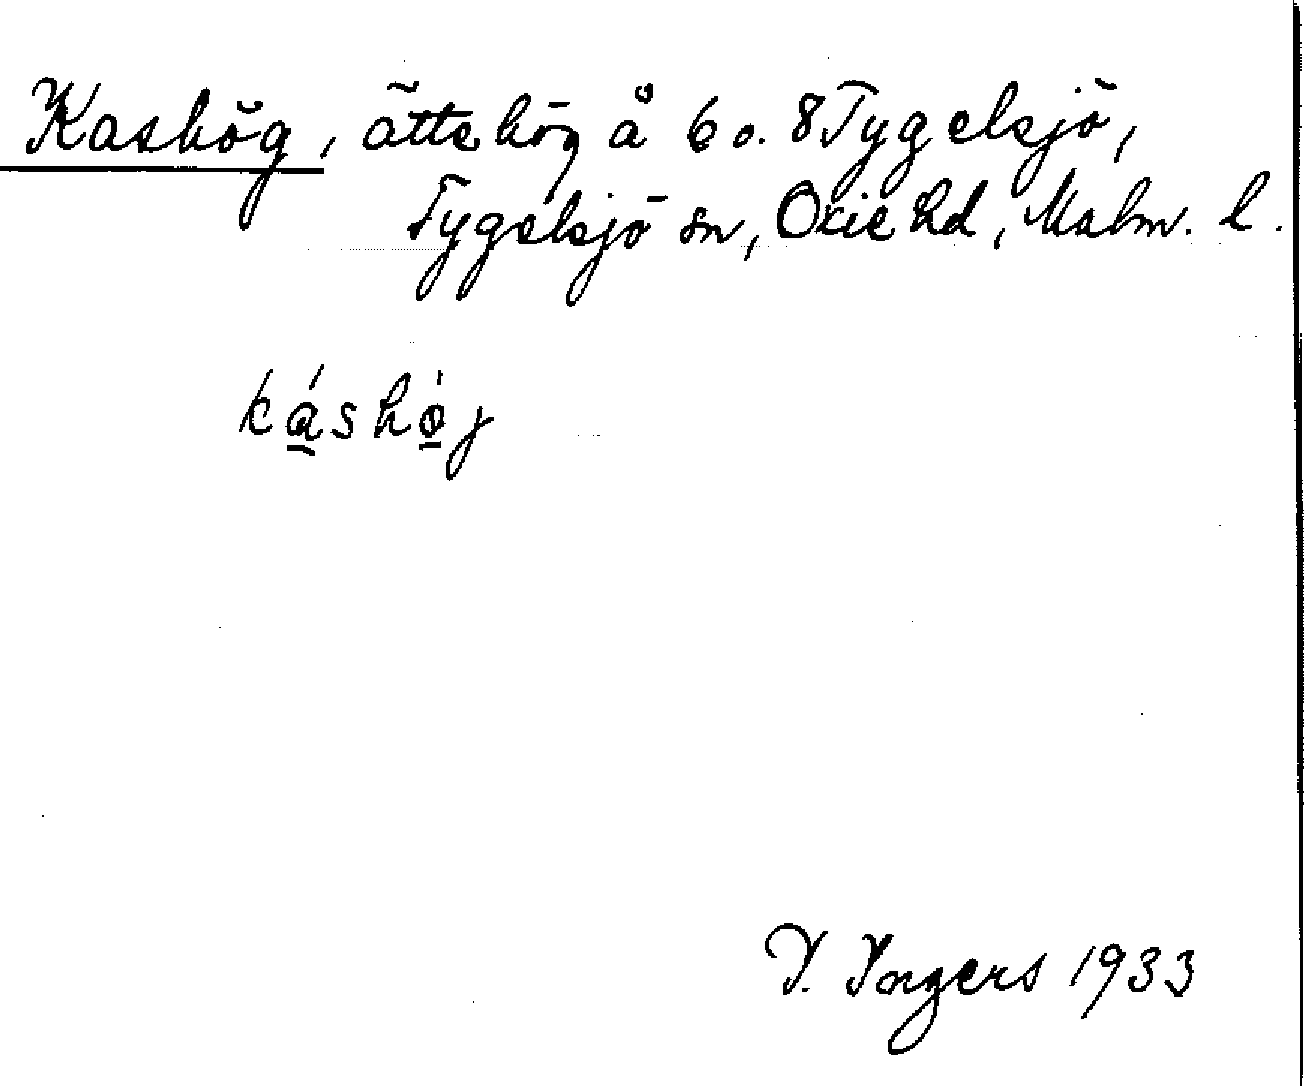 Kashög, ättehög å 6 o. 8 Tygelsjö,
Tygelsjö sn, Oxie hd, Malm. l.
káshø̍j
I. Ingers 1933